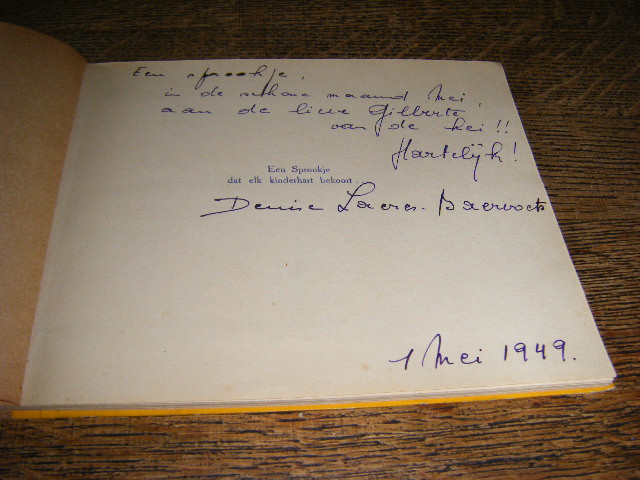 Een sprookje,
in de schone maand Mei,
aan de lieve Gilberte
van de kei!!
Hartelijk!
Een Sprookje
dat elk kinderhart bekoort
Denise Laeres-Baervoets
1 Mei 1949.